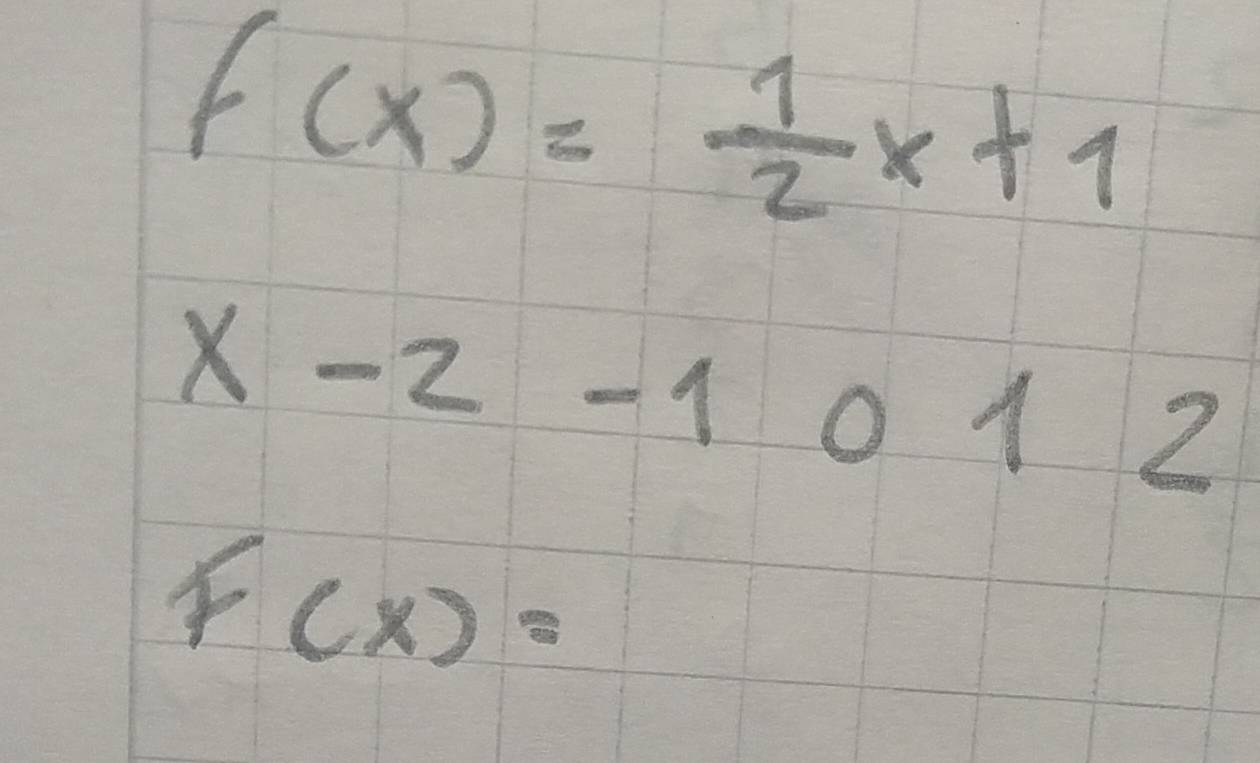 f(x) = 1/2 x + 1
x -2 -1 0 1 2
F(x) =